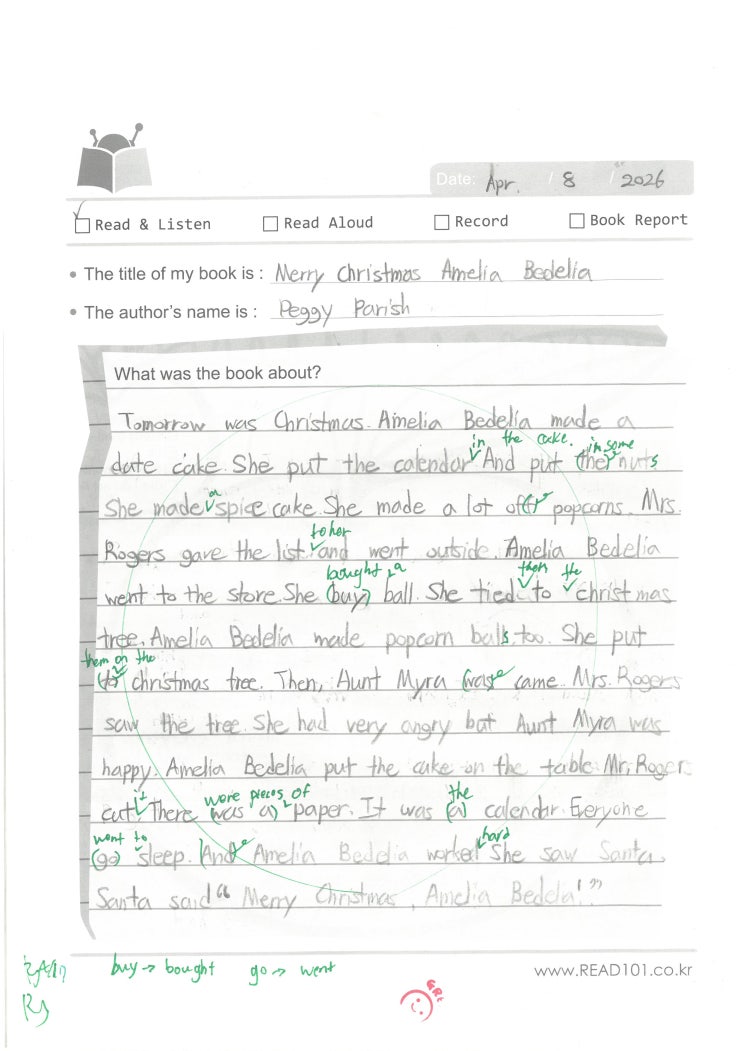 Date: Apr. / 8 / 2026
Read & Listen Read Aloud Record Book Report
• The title of my book is : Merry Christmas Amelia Bedelia
• The author's name is : Peggy Parish
What was the book about?
Tomorrow was Christmas. Amelia Bedelia made a
in the cake. in some
date cake. She put the calendar And put (the) nuts
a
She made spice cake. She made a lot of popcorns. Mrs.
to her
Rogers gave the list and went outside. Amelia Bedelia
bought a them the
went to the store. She (buy) ball. She tied to christmas
tree. Amelia Bedelia made popcorn balls too. She put
them on the
(to) christmas tree. Then, Aunt Myra (was) came. Mrs. Rogers
saw the tree. She had very angry but Aunt Myra was
happy. Amelia Bedelia put the cake on the table. Mr. Roger
it were pieces of the
cut. There (was a) paper. It was (a) calendar. Everyone
went to hard
(go) sleep. (And) Amelia Bedelia worked She saw Santa.
Santa said "Merry Christmas, Amelia Bedelia!"
buy → bought go → went
www.READ101.co.kr